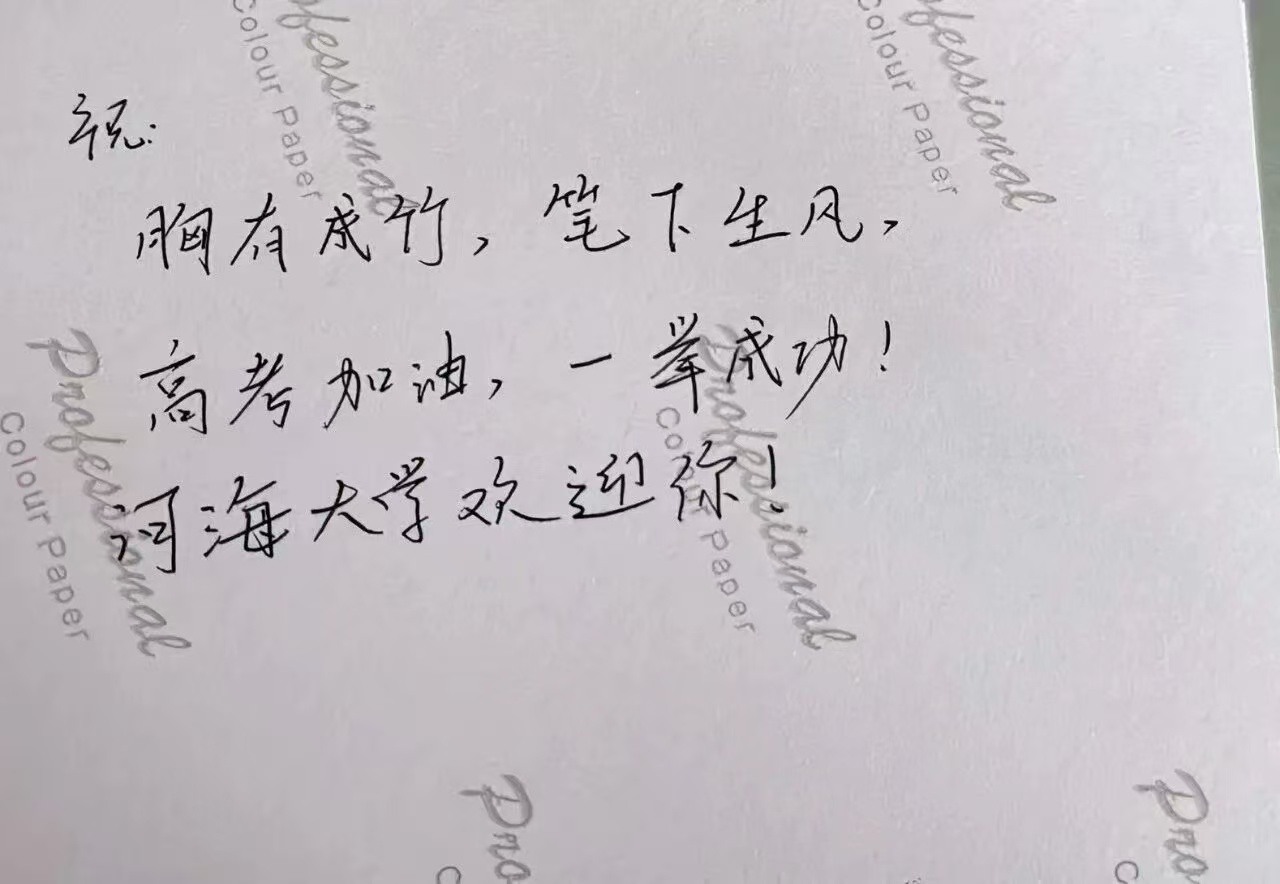 Professional
Colour Paper
ofessional
Colour Paper
祝:
胸有成竹,笔下生风,
高考加油,一举成功!
河海大学欢迎你!
Professional
Colour Paper
Professional
Colour Paper
Pro
C
Pro
C